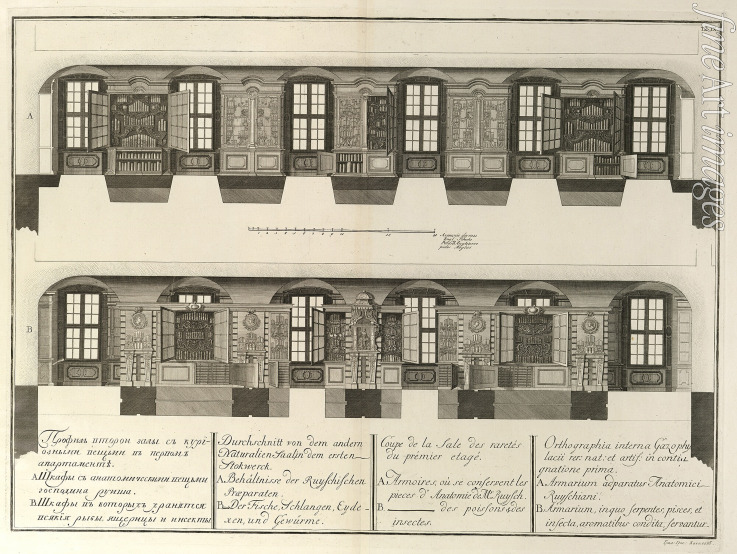 Профиль второи залы съ курі-
озными вещьми въ первомъ
апартаментѣ.
А Шкафы съ анатомическими вещьми
господина руиша.
В Шкафы въ которыхъ хранятся
всякія рыбы, ящерицы и инсекты
Durchschnitt von dem andern
Naturalien Saal in dem ersten
Stokwerck.
A. Behältnisse der Ruyschischen
Præparaten.
B. Der Fische, Schlangen, Eyde-
xen, und Gewürme.
Coupe de la Sale des raretés
du prémier etage.
A. Armoires, où se conservent les
pieces d'Anatomie de Mr. Ruysch.
B. des poissons & des
insectes.
Orthographia interna Gazophy
lacii rer. nat. et artif. in contig
natione prima.
A. Armarium adparatus Anatomici
Ruyschiani.
B. Armarium, in quo serpentes, pisces, et
insecta, aromatibus condita, servantur.
A
B
fine art images